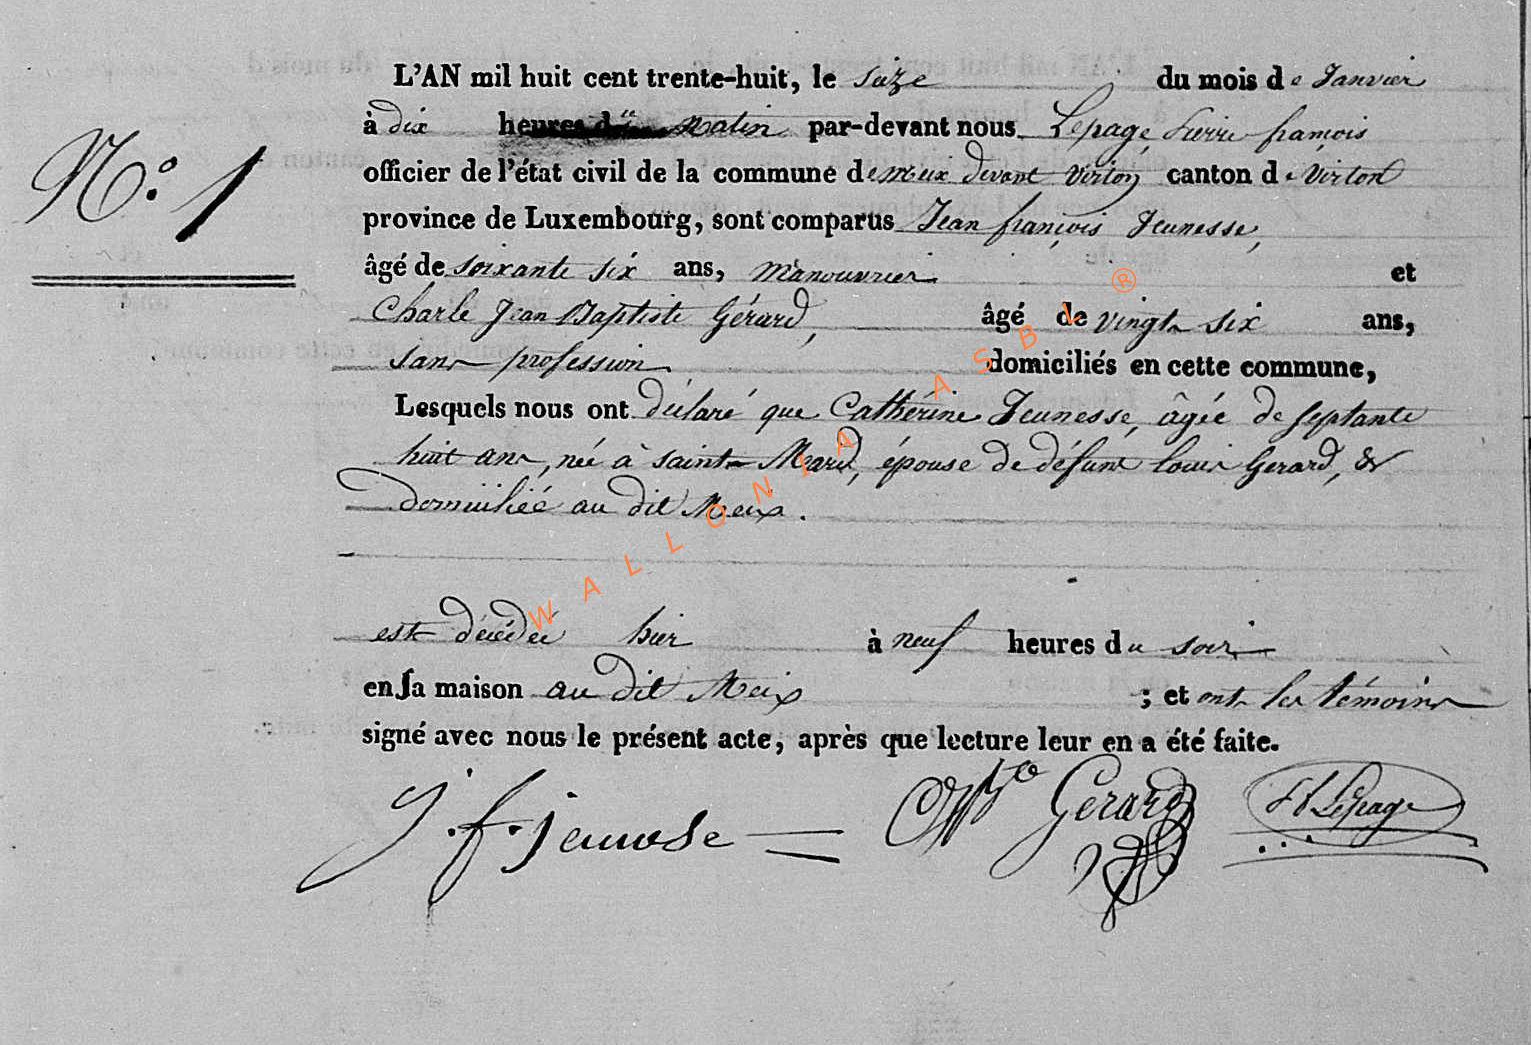 L'AN mil huit cent trente-huit, le seize du mois de Janvier
à dix heures du Matin par-devant nous Lepage Pierre françois
N.° 1
officier de l'état civil de la commune de meix devant Virton canton de Virton
province de Luxembourg, sont comparus Jean françois Jeunesse,
âgé de soixante six ans, manouvrier et
Charle Jean Baptiste Gérard, âgé de vingt six ans,
sans profession domiciliés en cette commune,
Lesquels nous ont déclaré que Cathérine Jeunesse, âgée de septante
huit ans, née à saint Mard, épouse de défunt louis Gerard, &
domiciliée au dit Meix.
est décédée hier à neuf heures du soir
en sa maison au dit Meix ; et ont les témoins
signé avec nous le présent acte, après que lecture leur en a été faite.
J. f. jeunesse Gerard Lepage
WALLONIA ASBL ®